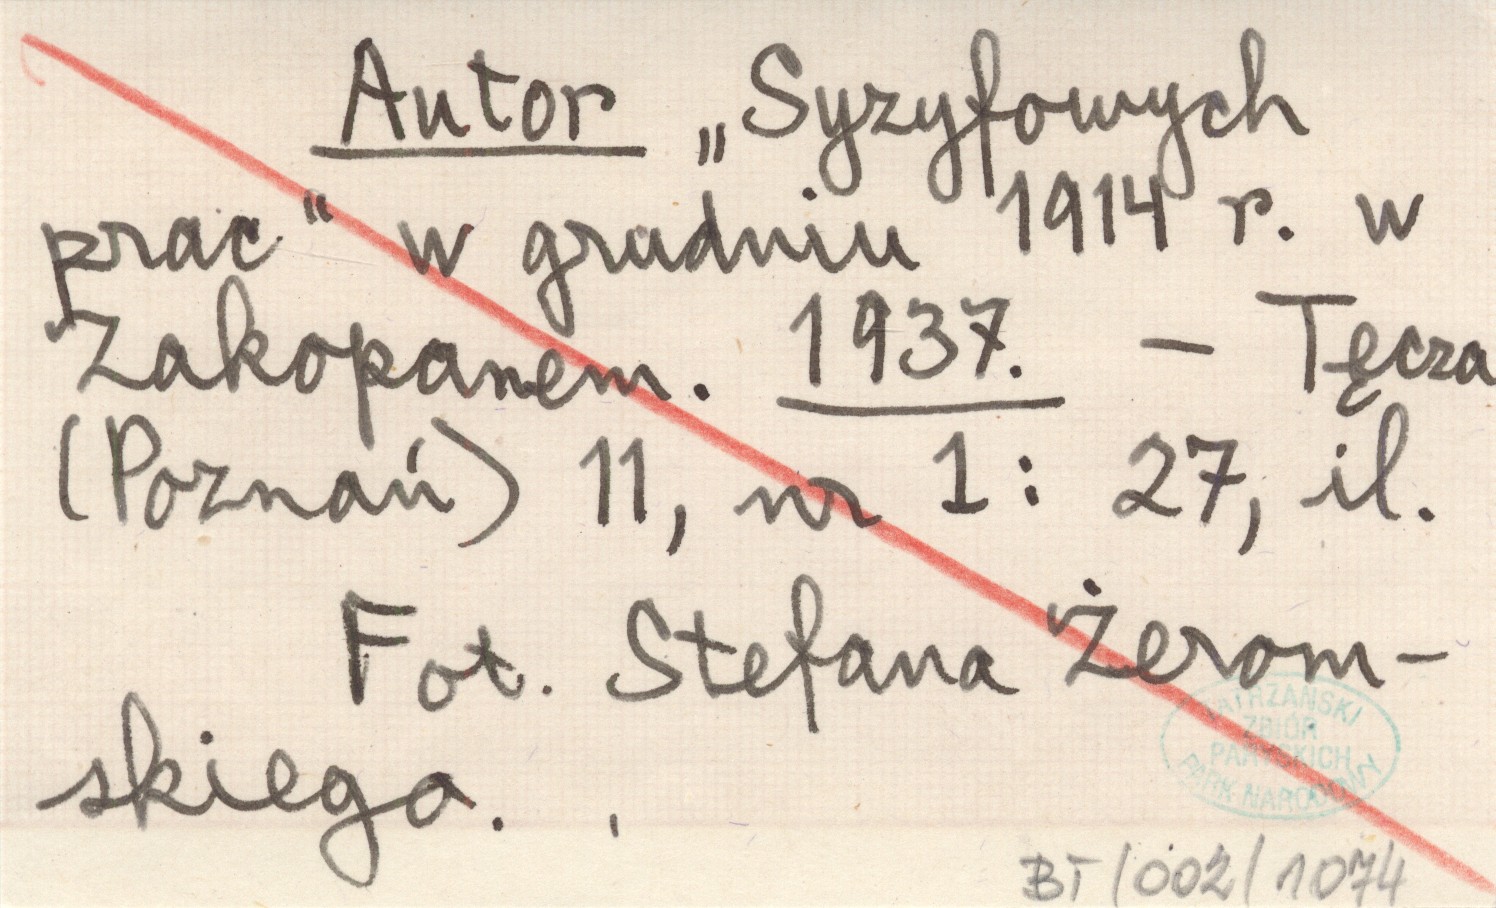 Autor „Syzyfowych
prac" w grudniu 1914 r. w
Zakopanem. 1937. – Tęcza
(Poznań) 11, nr 1: 27, il.
Fot. Stefana Żerom-
skiego.
TATRZAŃSKI
ZBIÓR
PARYSKICH
PARK NARODOWY
BT/002/1074